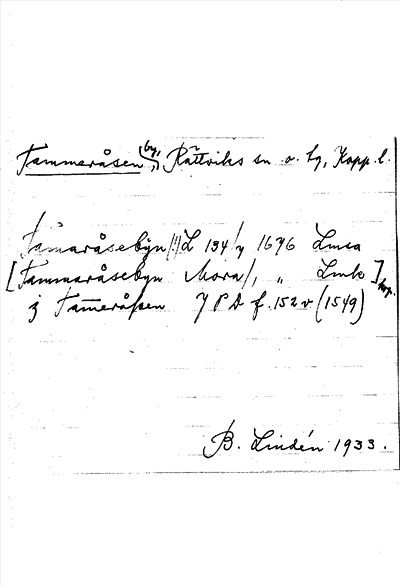 Tammeråsen (by,) Rättviks sn o. hg, Kopp. l.
Tåmaråsebÿn/!/ L 134/y 1676 Lmsa
[Tammaråsebyn Mora/, „ Lmk] kop.
j Tam̅eråssen J P D f. 152 v (1549)
B. Lindén 1933.